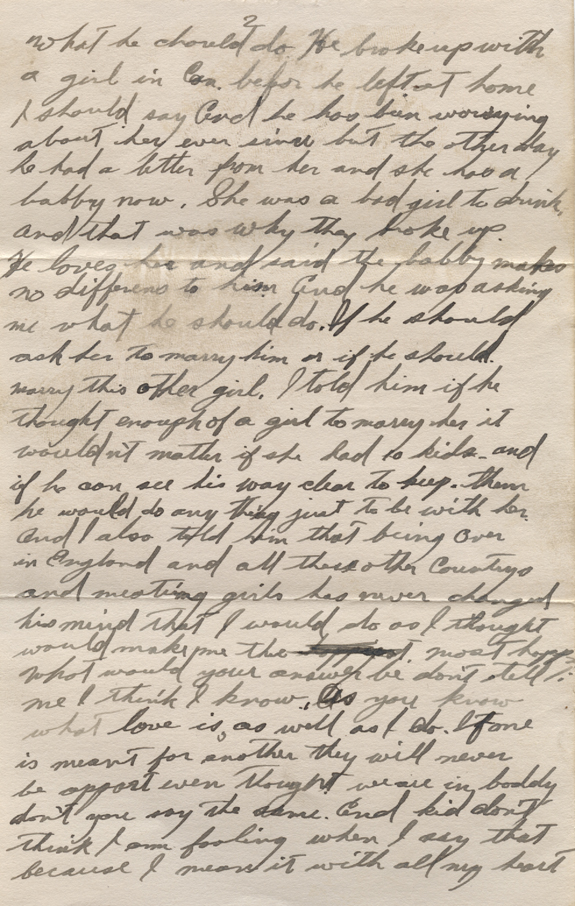 2
what he chould do He broke up with
a girl in Can. befor he left at home
I should say And he has bin worrying
about her ever since but the other day
he had a letter from her and she has a
babby now. She was a bad girl to drink,
and that was why they broke up.
He loves her and said the babby makes
no differens to him And he was asking
me what he should do. If he should
ask her to marry him or if he should.
marry this other girl. I told him if he
thought enough of a girl to marry her it
wouldn't matter if she had 10 kids. and
if he can see his way clear to keep. them
he would do any thing just to be with her.
And I also told him that being over
in England and all these other Countrys
and meating girls has never changed
his mind that I would do as I thought
would make me the most happy.
What would your answer be don't tell
me I think I know, As you know
what love is, as well as I do. If one
is meant for another they will never
be appart even thought we are in boddy
don't you say the same. And kid don't
think I am fooling when I say that
because I mean it with all my heart